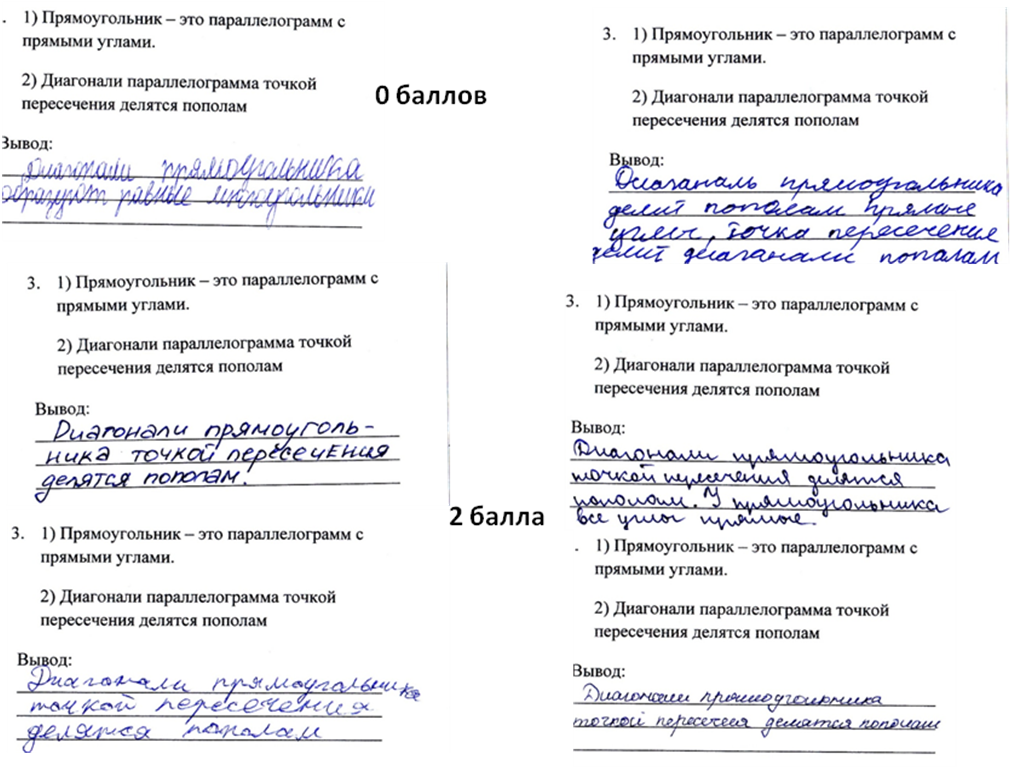 . 1) Прямоугольник – это параллелограмм с
прямыми углами.
2) Диагонали параллелограмма точкой
пересечения делятся пополам
Вывод:
Диагонали прямоугольника
образуют равные
0 баллов
3. 1) Прямоугольник – это параллелограмм с
прямыми углами.
2) Диагонали параллелограмма точкой
пересечения делятся пополам
Вывод:
Диаганаль прямоугольника
делит пополам прямые
углы, точка пересечения
делит диаганали пополам
3. 1) Прямоугольник – это параллелограмм с
прямыми углами.
2) Диагонали параллелограмма точкой
пересечения делятся пополам
Вывод:
Диагонали прямоуголь-
ника точкой пересечения
делятся пополам.
3. 1) Прямоугольник – это параллелограмм с
прямыми углами.
2) Диагонали параллелограмма точкой
пересечения делятся пополам
Вывод:
Диагонали прямоугольника
точкой пересечения делятся
пополам. У прямоугольника
все углы прямые.
2 балла
3. 1) Прямоугольник – это параллелограмм с
прямыми углами.
2) Диагонали параллелограмма точкой
пересечения делятся пополам
Вывод:
Диагонали прямоугольника
точкой пересечения
делятся пополам
. 1) Прямоугольник – это параллелограмм с
прямыми углами.
2) Диагонали параллелограмма точкой
пересечения делятся пополам
Вывод:
Диагонали прямоугольника
точкой делятся пополам